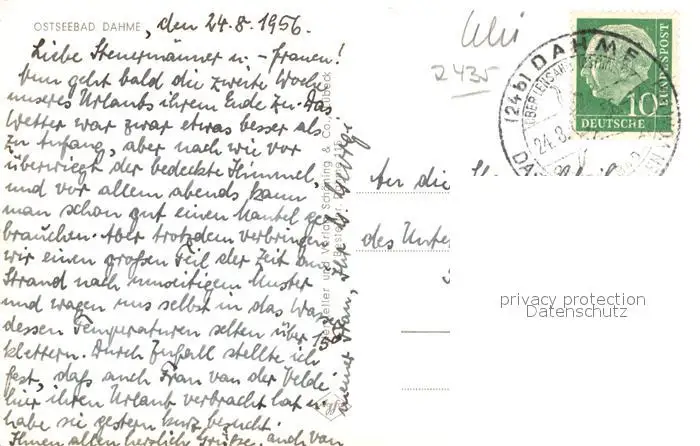 OSTSEEBAD DAHME, den 24.8.1956.
Liebe Steuermänner u. -frauen!
Nun geht bald die zweite Woche
unseres Urlaubs ihrem Ende zu. Das
Wetter war zwar etwas besser als
zu Anfang, aber nach wie vor
überwiegt der bedeckte Himmel,
und vor allem abends kann
man schon gut einen Mantel ge-
brauchen. Aber trotzdem verbringen
wir einen großen Teil der Zeit am
Strand nach Muster
und wagen uns selbst in das Wasser
dessen Temperaturen selten über 15°
klettern. Durch Zufall stellte ich
fest, daß auch Frau van der Velde
hier ihren Urlaub verbracht hat u.
habe sie gestern kurz besucht.
Ihnen allen herzlich Grüße, auch von
meiner Frau, Ihr
Hersteller und Verlag Schöning & Co., Lübeck
R 435
(24b) DAHME
24.8.
10
DEUTSCHE
BUNDESPOST
An die
des
privacy protection
Datenschutz